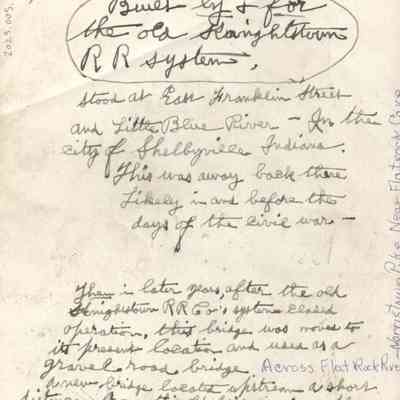 Built by & for
the old Knightstown
R R system.
stood at East Franklin Street
and Little Blue River - In the
city of Shelbyville Indiana.
This was away back there
Likely in and before the
days of the civil war -
Then in later years, after the old
Knightstown RR Co's system closed
operation, this bridge was moved to
its present location and used as a
gravel road bridge.
Across Flat Rock River
a new bridge located upstream a short
Norristown Pike Near Flatrock Cave
2023.005.